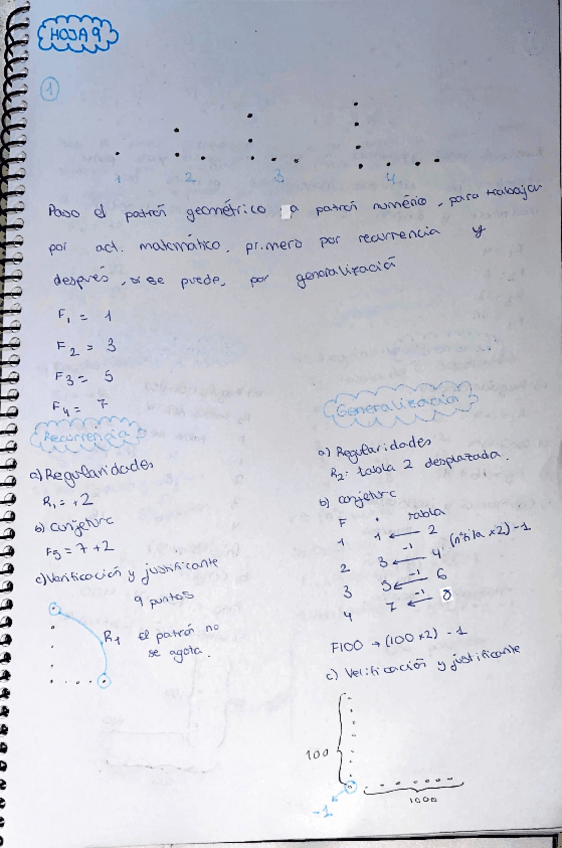 HOJA 9
1
1 2 3 4
Paso el patrón geométrico a patrón numérico, para trabajar
por act. matemático, primero por recurrencia y
después, si se puede, por generalización
F1 = 1
F2 = 3
F3 = 5
F4 = 7
Recurrencia
a) Regularidades
R1 = +2
b) conjetura
F5 = 7 + 2
c) Verificación y justificante
9 puntos
R1 el patrón no
se agota.
Generalización
a) Regularidades
R2: tabla 2 desplazada.
b) conjetura
F . tabla
1 1 ← 2
2 3 ← -1 4 (nºfila x2) -1
3 5 ← -1 6
4 7 ← -1 8
F100 → (100 x2) - 1
c) Verificación y justificante
100
1000
-1